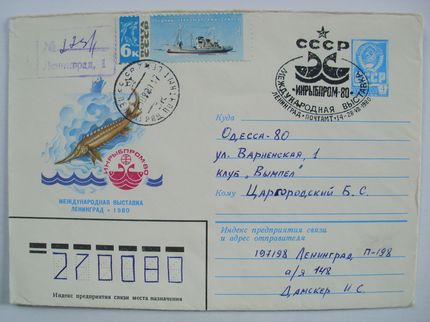 №
Ленинград, 1
6к
СССР
ИНРЫБПРОМ-80
МЕЖДУНАРОДНАЯ ВЫСТАВКА
ЛЕНИНГРАД - ПОЧТАМТ - 14-28.VIII.1980
ИНРЫБПРОМ-80
МЕЖДУНАРОДНАЯ ВЫСТАВКА
ЛЕНИНГРАД • 1980
Куда
Одесса-80
ул. Варненская, 1
клуб "Вымпел"
Кому Царгородский Б. С.
Индекс предприятия связи
и адрес отправителя
197198 Ленинград П-198
а/я 148
Дамскер И.С.
270080
Индекс предприятия связи места назначения